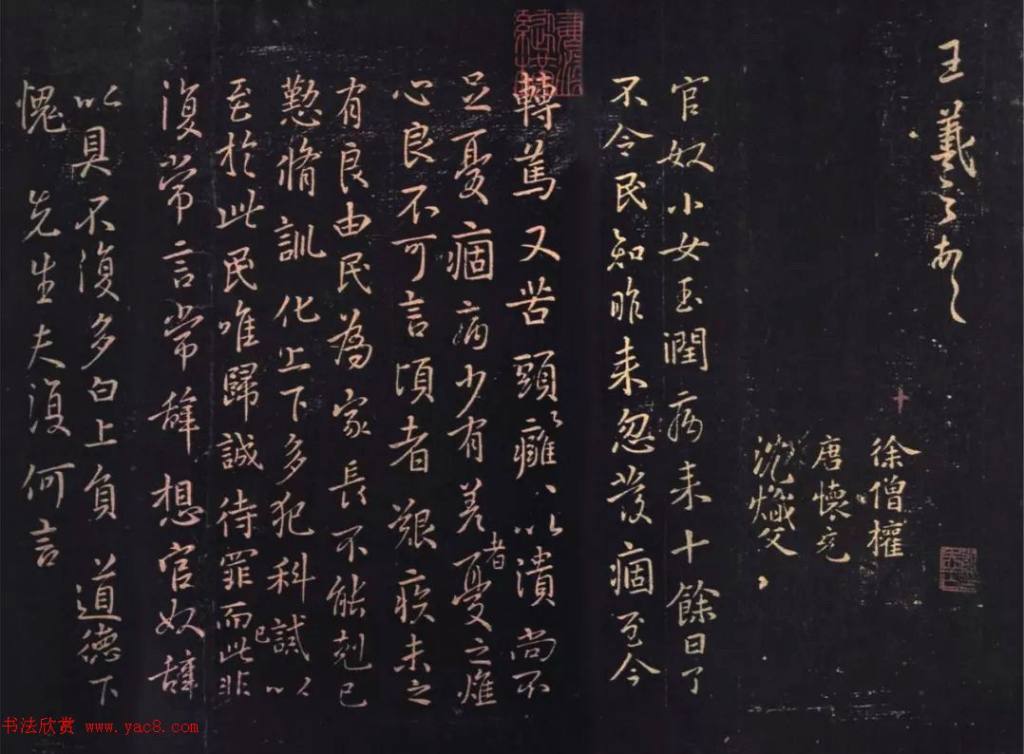 王羲之頓首
徐僧權
唐懷充
沈熾文
官奴小女玉潤病來十餘日了
不令民知昨來忽發痼至今
轉篤又苦頭癰頭癰以潰尚不
足憂痼病少有差者憂之燋
心良不可言頃者艱疾未之
有良由民為家長不能剋己
懃脩訓化上下多犯科誡以
至於此民唯歸誠待罪而已此非
復常言常辭想官奴辭
以具不復多白上負道德下
愧先生夫復何言
书法欣赏 www.yac8.com